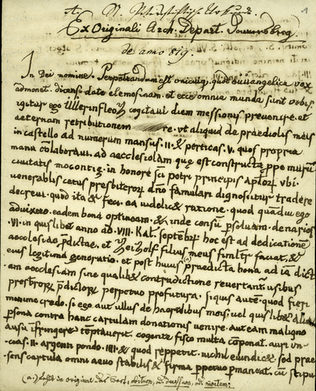 Ex Originali Arch. Depart.
de anno 819.
In Dei nomine. Perpetrandum est unicuiq. quod evangelica vox
admonet, dicens date elemosinam, et ecce omnia mundi sunt vobis,
igitur ego cogitavi diem messionis prevenire, et
aeternam retributionem re. ut aliquid de praediolis meis
in castello ad numerum mansus. III. & perticas. V. quos propria
manu collaboravi, ad aecclesiolam que est constructa ppe murum
civitatis mocontie, in honore sci petri principis Aplor. ubi
venerabilis cetus presbiterorum dno famulari dignoscitur tradere
decrevi. quod ita & feci. ea videlic& ratione. quod quadiu ego
advixero eadem bona optineam. & inde censum psolvam. denarios
VI. in quisl. bet anno ad VIII. Kal. septembr. hoc est ad dedicatione
aecclesiae pdictae. et filius meus similiter faciat. &
eius legitima generatio. et post huius praedicta bona. ad ia dict
am aecclesiam sine qualib& contradictione revertant. usibus
prbrorum pdictor. perpetuo profutura. siquis aute quod fieri
minime credo. si ego aut ullus de haeredibus meis. vel quislib&
psona contra hanc cartulam donationis venire. aut eam maligno
ausu infringere teptaverit. cogente fisco multa componat. auri un-
cias. II. argenti pondo. IIII. & quod reppetit. nichil evindic&. sed prae-
sens cartula omni aevo stabilis & firma ppetuo pmaneat. cu stipu